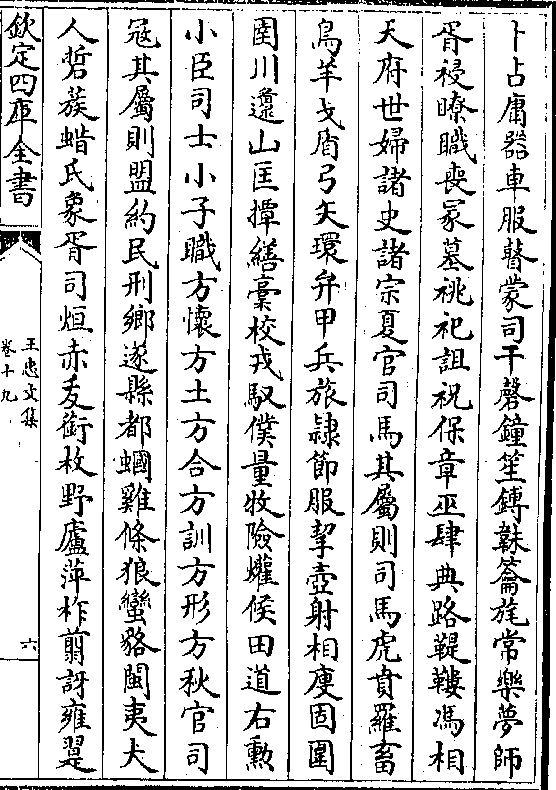 卜占庸器車服瞽蒙司干磬鐘笙鎛韎籥旄常樂夢師
胥祲瞭職喪冢墓祧祀詛祝保章巫肆典路鞮鞻馮相
天府世婦諸史諸宗夏官司馬其屬則司馬虎賁羅畜
鳥羊戈盾弓矢環弁甲兵旅隷節服挈壺射相廋固圉
圉川邍山匡撢繕槀校戎馭僕量牧險爟侯田道右勲
小臣司士小子職方懷方土方合方訓方形方秋官司
冦其屬則盟約民刑鄉遂縣都蟈雞條狼蠻貉閩夷犬
人硩蔟蜡氏象胥司烜赤犮銜枚野廬萍柞翦訝雍翨
欽定四庫全書
王忠文集
卷十九
六